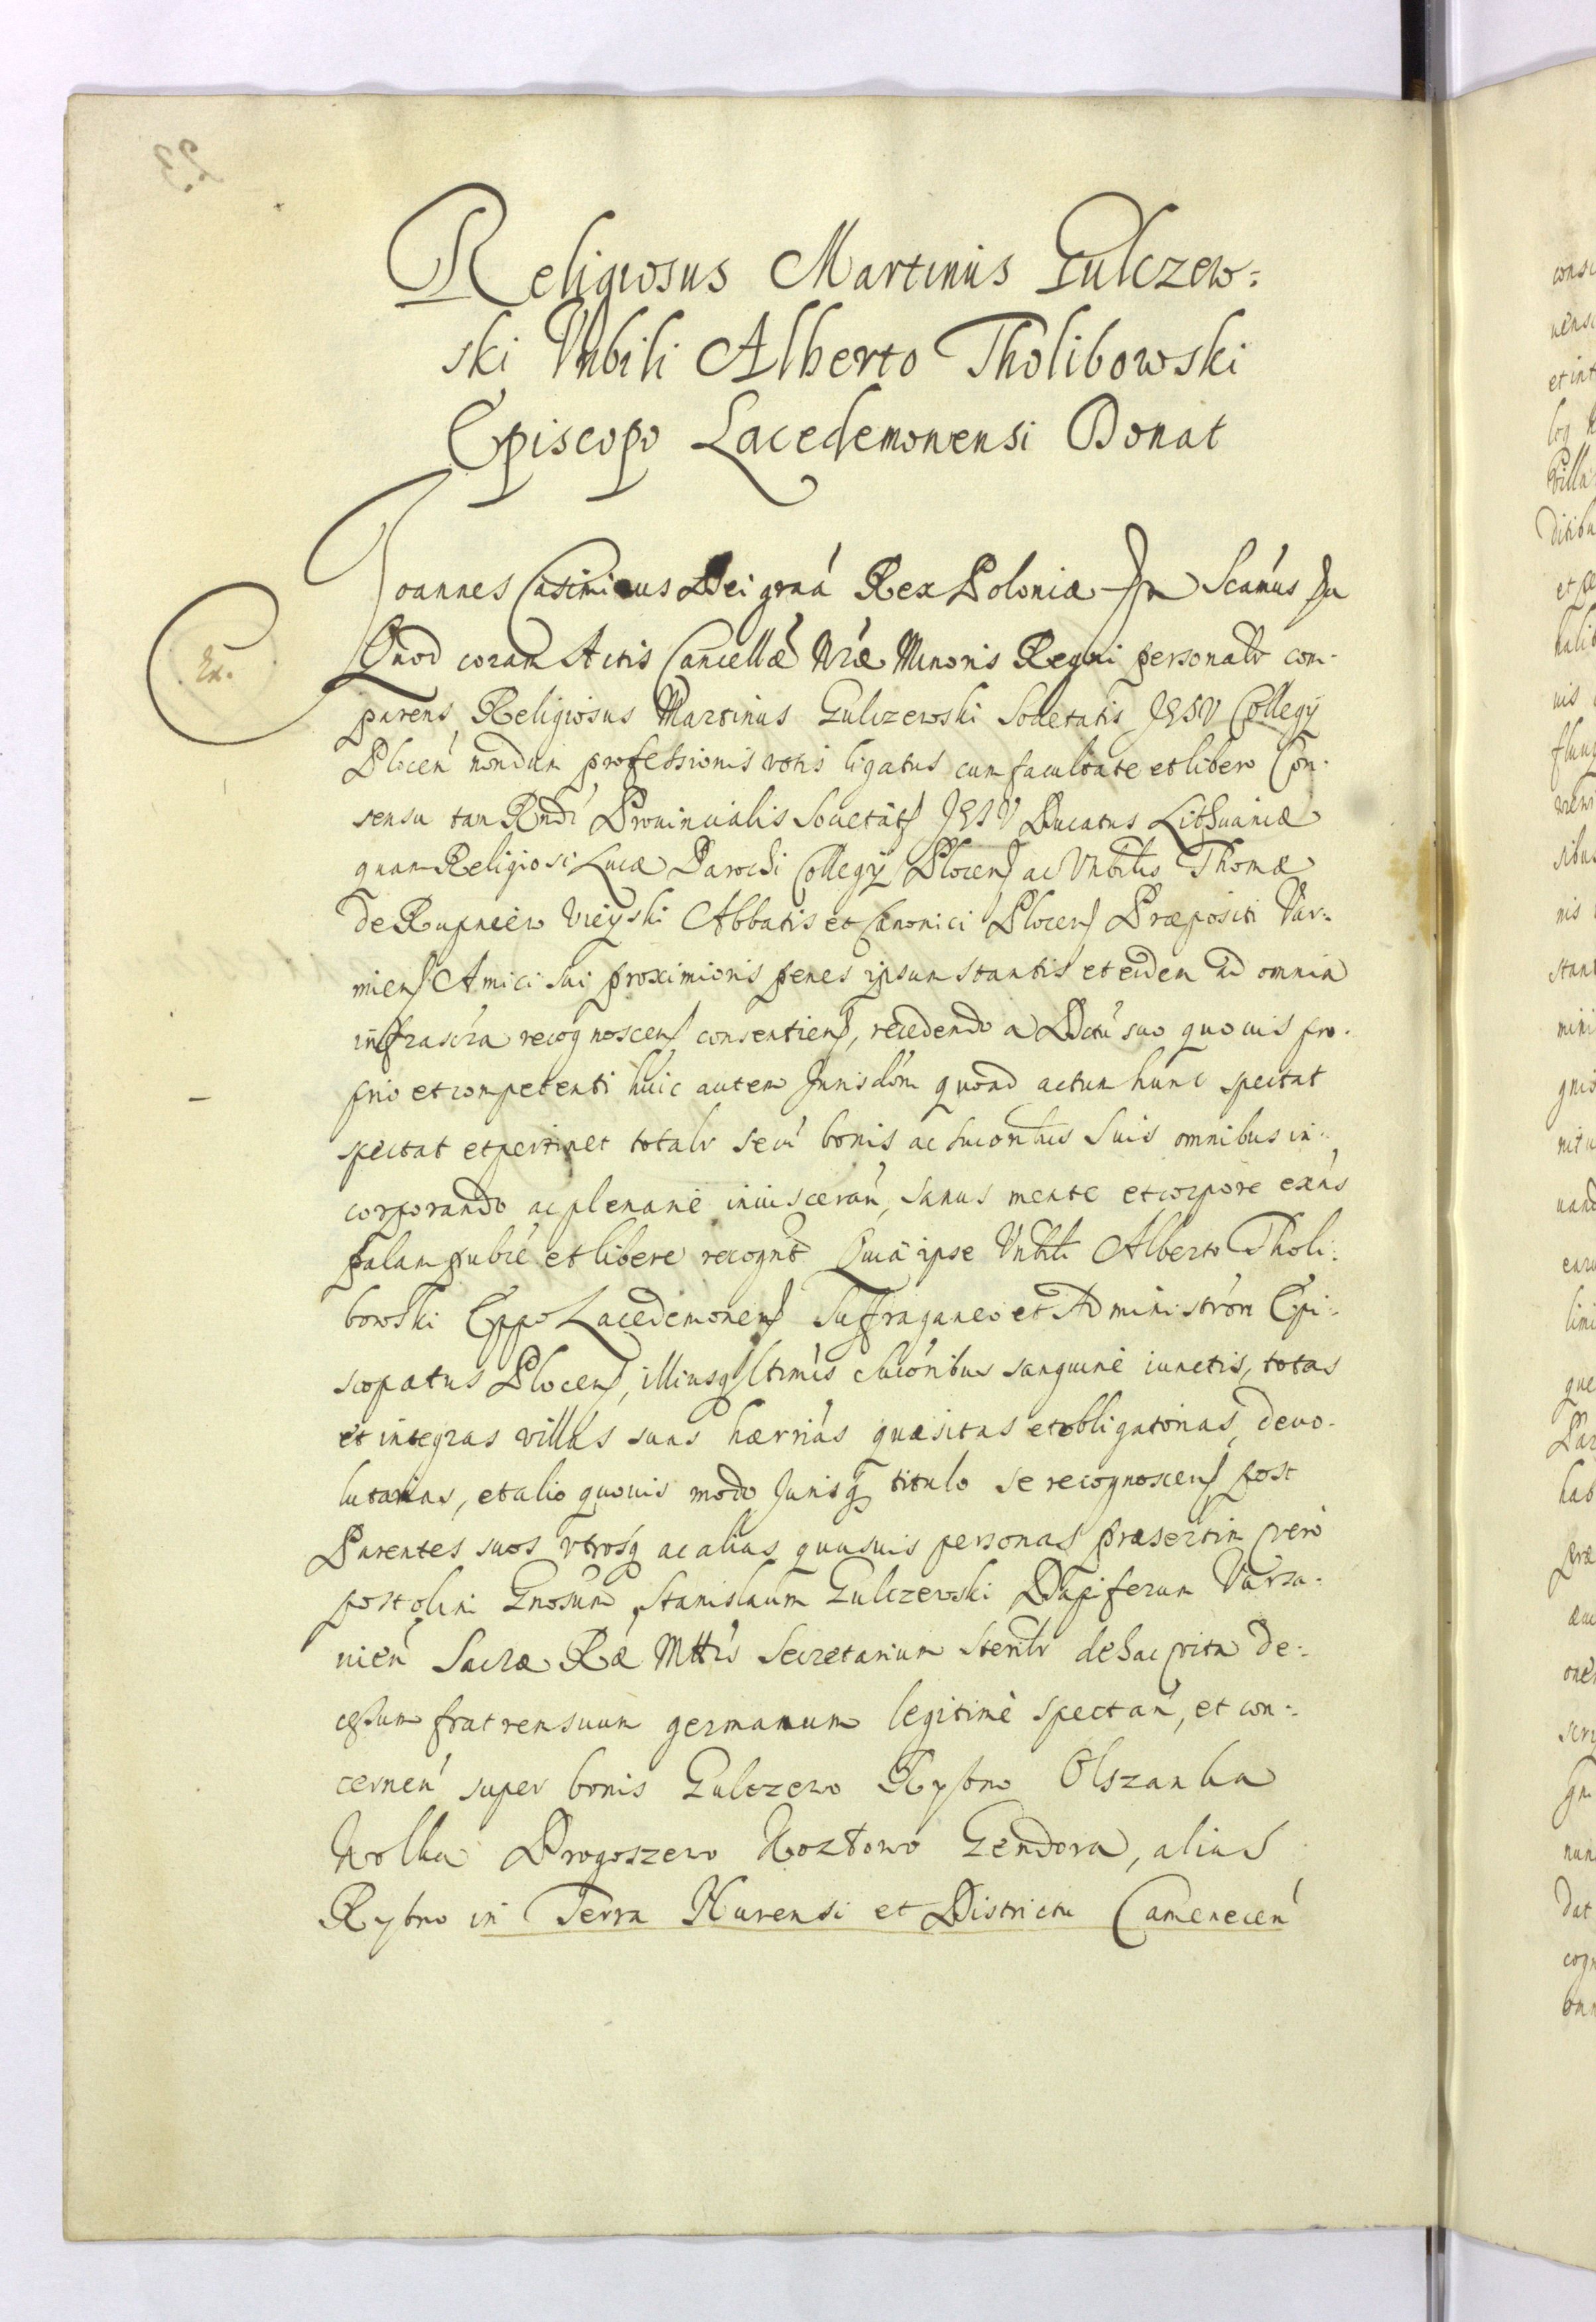 Religiosus Martinus Gulczew:
ski Vnbili Alberto Tholibowski
Episcopo Lacedemonensi Donat
Joannes Casimirus Dei graá Rex Poloniæ Scamús
Ex.
Quod coram Actis Cancellǽ Nrǽ Minoris Regni personalr com-
parens Religiosus Martinus Gulczewski Societatis JESV Collegÿ
Ploceń nondum professionis votis ligatus cum facultate et libero Con-
sensu tam Rndi Prouincialis Societát JESV Ducatus Lithuaniæ
quam Religiosi Lucæ Parochi Collegÿ Plocen ac Vnbilis Thomæ
de Rupniew Vieyski Abbatis et Canonici Plocen Præpositi Var-
mien Amici sui proximioris penes ipsum stantis et eidem ad omnia
infrascra recognoscen consentien, recedendo a suo quouis pro-
prio et competenti huic autem Jurisdóm quoad actum hunc spectat
spectat et pertinet totalr secú bonis ac sucoribus suis omnibus in-
corporando ac plenarié inuisceran, sanus mente et corpore exńs
palam publé et libere recognt Quia ipse Vnbili Alberto Tholi-
bowski Eppo Lacedemonen Suffraganeo et Administróri Epi-
scopatus Plocen, illiusq ltimis sucóribus sanguine iunctis, totas
et integras villas suas hærriás quæsitas et obligatorias, deuo-
lutarias, et alio quouis modo Jurisq titulo se recognoscen post
Parentes suos vtrosq ac alias quasuis personas præsertim vero
post olim Gnosum Stanislaum Gulczewski Dapiferum Varsa-
uień Sacræ Ræ Mttis Secretarium sterilr de hac vita de-
cessum fratrem suum germanum legitime spectań, et con-
cerneń super bonis Gulczewo Rybno Olszanka
Wolka Drogoszewo Kozłowo Gendora, alias
Rybno in Terra Nurensi et Districtu Cameneceń